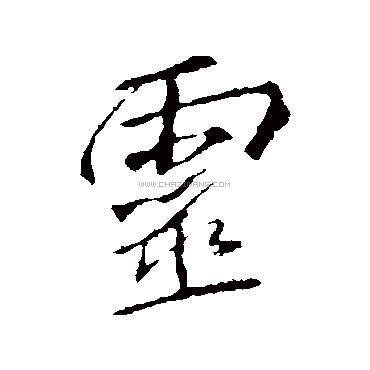 靈
WWW.CHAZIWANG.COM